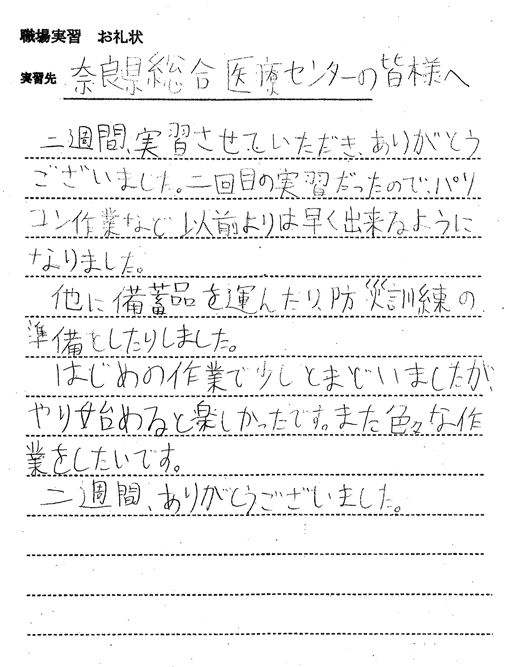 職場実習 お礼状
実習先 奈良県総合医療センターの皆様へ
二週間、実習させていただき、ありがとう
ございました。二回目の実習だったので、パソ
コン作業など以前よりは早く出来るように
なりました。
他に備蓄品を運んだり、防災訓練の
準備をしたりしました。
はじめの作業で少しとまどいましたが、
やり始めると楽しかったです。また色々な作
業をしたいです。
二週間、ありがとうございました。